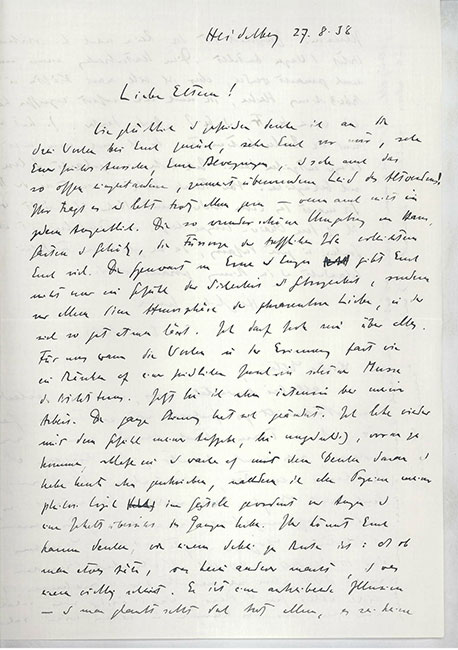 Heidelberg 27.8.38
Liebe Eltern!
Wie glücklich u zufrieden denke ich an die
drei Wochen bei Euch zurück, sehe Euch vor mir, sehe
Euer gutes Aussehen, Eure Bewegungen, u sehe auch das
so offen eingestandene, zumeist überwundene Leid des Altwerdens!
Ihr tragt es u lebt trotz allem gern – wenn auch nicht in
jedem Augenblick. Die so wunderschöne Umgebung in Haus,
Garten u Gehölz, die Fürsorge der trefflichen Ida erleichtern
Euch viel. Die Gegenwart von Erna u Eugen gibt Euch
nicht nur ein Gefühl der Sicherheit u Geborgenheit, sondern
vor allem eine Atmosphäre der Liebe, in der
sich so gut atmen lässt. Ich darf froh sein über alles.
Für uns waren die Wochen in der Erinnerung fast wie
ein auf einer friedlichen Insel in schöner Musse
des Nichtstuns. Jetzt bin ich eben intensiv bei meiner
Arbeit. Die ganze Stimmung hat sich geändert. Ich lebe wieder
mit dem Gefühl meiner Aufgabe, bin ungeduldig, voran zu
kommen, schlafe ein u wache auf mit dem Denken daran. Ich
habe heute eben geschrieben, nachdem ich die Papiere meiner
philos. Logik im Gestelle geordnet vor Augen u
eine Inhaltsübersicht des Ganzen habe. Ihr könnt Euch
kaum denken, wie einem dabei zu Mute ist: als ob
man etwas täte, was kein anderer macht, u was
einem wichtig scheint. Es ist eine antreibende Illusion
– u man glaubt selbst doch trotz allem, es sei keine